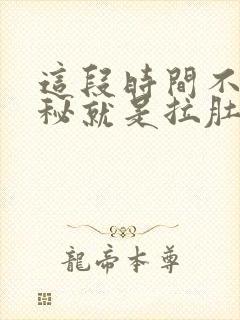 這段時間不
秘就是拉肚
龍帝本尊